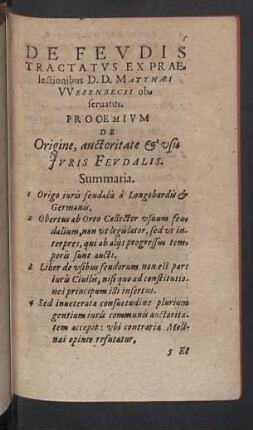 DE FEVDIS
TRACTATVS EX PRAE
lectionibus D.D. MATTHÆI
VVESENBECII ob-
seruatus.
PROOEMIVM
DE
Origine, auctoritate & usu
JVRIS FEVDALIS.
Summaria.
1 Origo iuris feudalis à Longobardis &
Germanis.
2 Obertus ab Orto Collector vsuum feu
dalium, non vt legislator, sed vt in
terpres, qui ab alijs progressu tem
poris sunt aucti.
3 Liber de vsibus feudorum non est pars
iuris Ciuilis, nisi quo ad constitutio
nes principum illi insertus.
4 Sed inueterata consuetudine plurium
gentium iuris communis auctorita-
tem accepit: vbi contraria Moli-
nai opinio refutatur,
5 Et